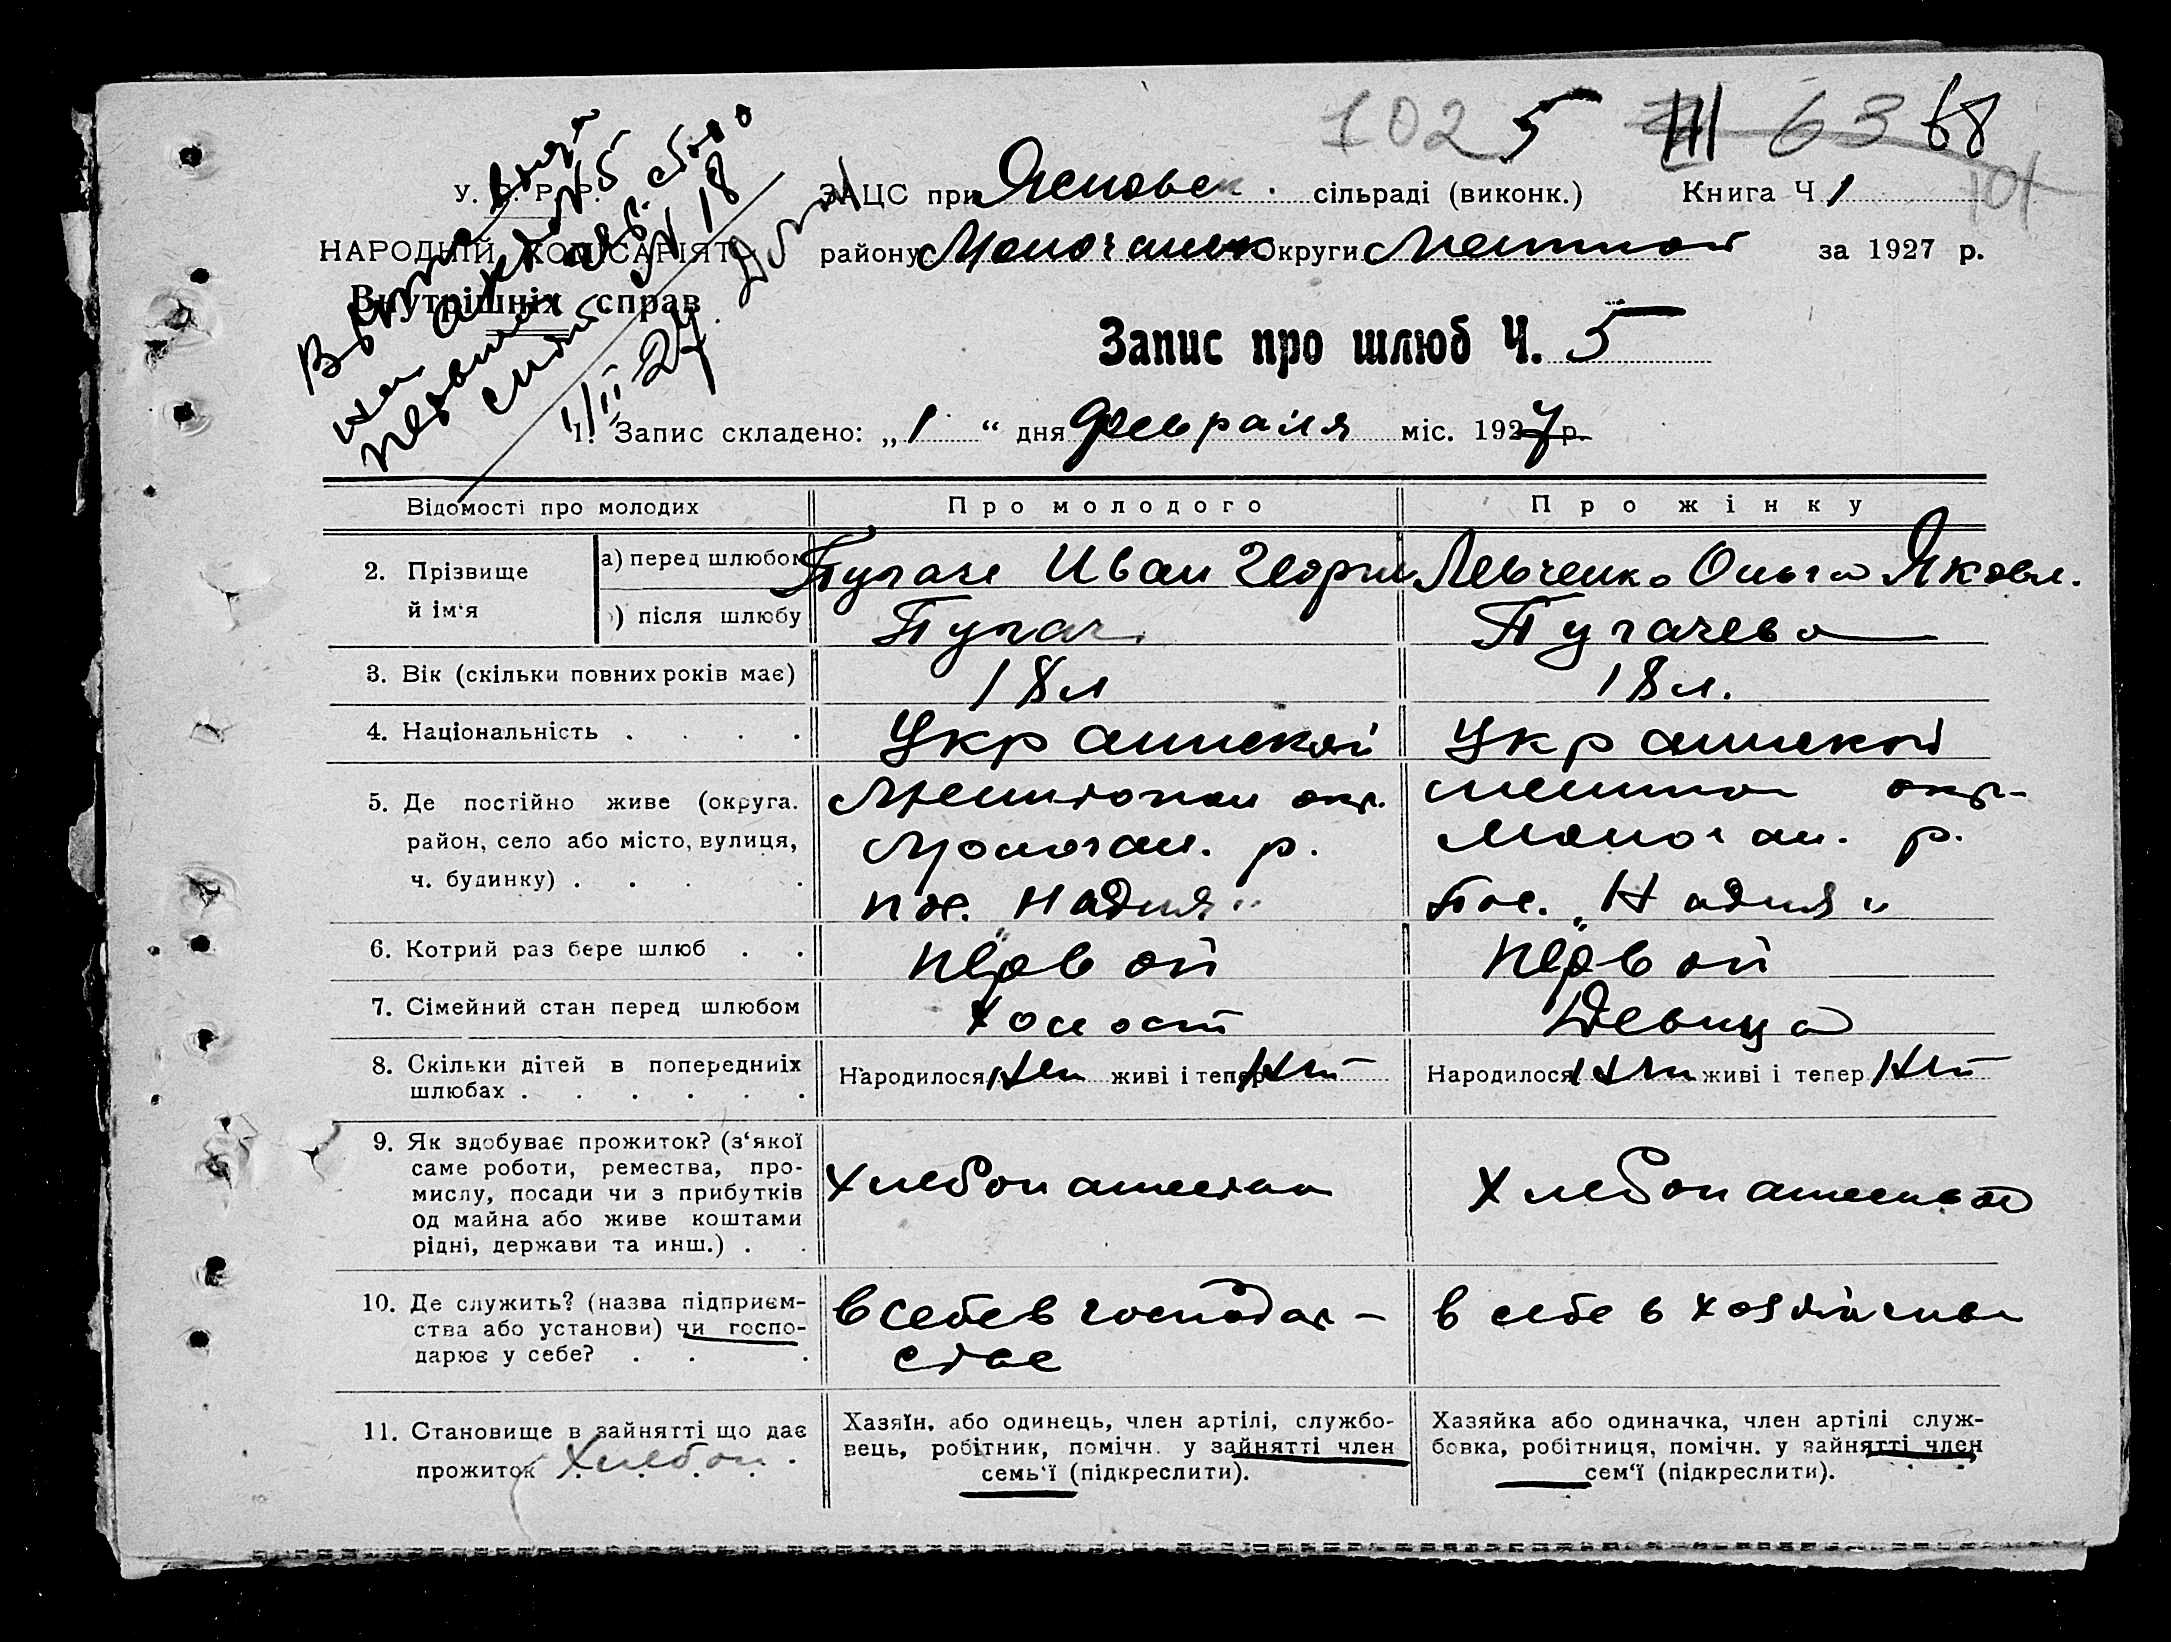 102 5 III 63 68
101
У. С. Р. Р.
ЗАЦС при Ясновск. сільраді (виконк.) Книга Ч 1
НАРОДНІЙ КОМІСАРІЯТ
району Молочанск Округи за 1927 р.
Внутрішніх справ
Запис про шлюб Ч. 5
1/II 27
1. Запис складено: „1“ дня Февраля міс. 1927 р.
Відомості про молодих
Про молодого
Про жінку
2. Прізвище й ім'я
а) перед шлюбом
Пугач Иван Георги
Левченко Ольга Яковл.
) після шлюбу
Пугач
Пугачева
3. Вік (скільки повних років має)
18 л
18 л.
4. Національність . . . .
Украинской
Украинской
5. Де постійно живе (округа. район, село або місто, вулиця, ч. будинку) . . . .
окр.
Молочан. р.
пос. „Надия“
окр.
Молочан. р.
Пос. „Надия“
6. Котрий раз бере шлюб . .
первой
первой
7. Сімейний стан перед шлюбом
холост
Девица
8. Скільки дітей в попередниіх шлюбах . . . . . .
Народилося нет живі і тепер нет
Народилося нет живі і тепер нет
9. Як здобуває прожиток? (з'якої
саме роботи, ремества, про-
мислу, посади чи з прибутків
од майна або живе коштами
рідні, держави та инш.) . .
хлебопашества
хлебопашество
10. Де служить? (назва підприєм-
ства або установи) чи госпо-
дарює у себе? . . .
в себе в господар-
стве
в себе в хозяйстве
11. Становище в зайнятті що дає
прожиток Хлебоп.
Хазяїн, або одинець, член артілі, службо-
вець, робітник, помічн. у зайнятті член
семь'ї (підкреслити).
Хазяйка або одиначка, член артілі служ-
бовка, робітниця, помічн. у зайнятті член
сем'ї (підкреслити).